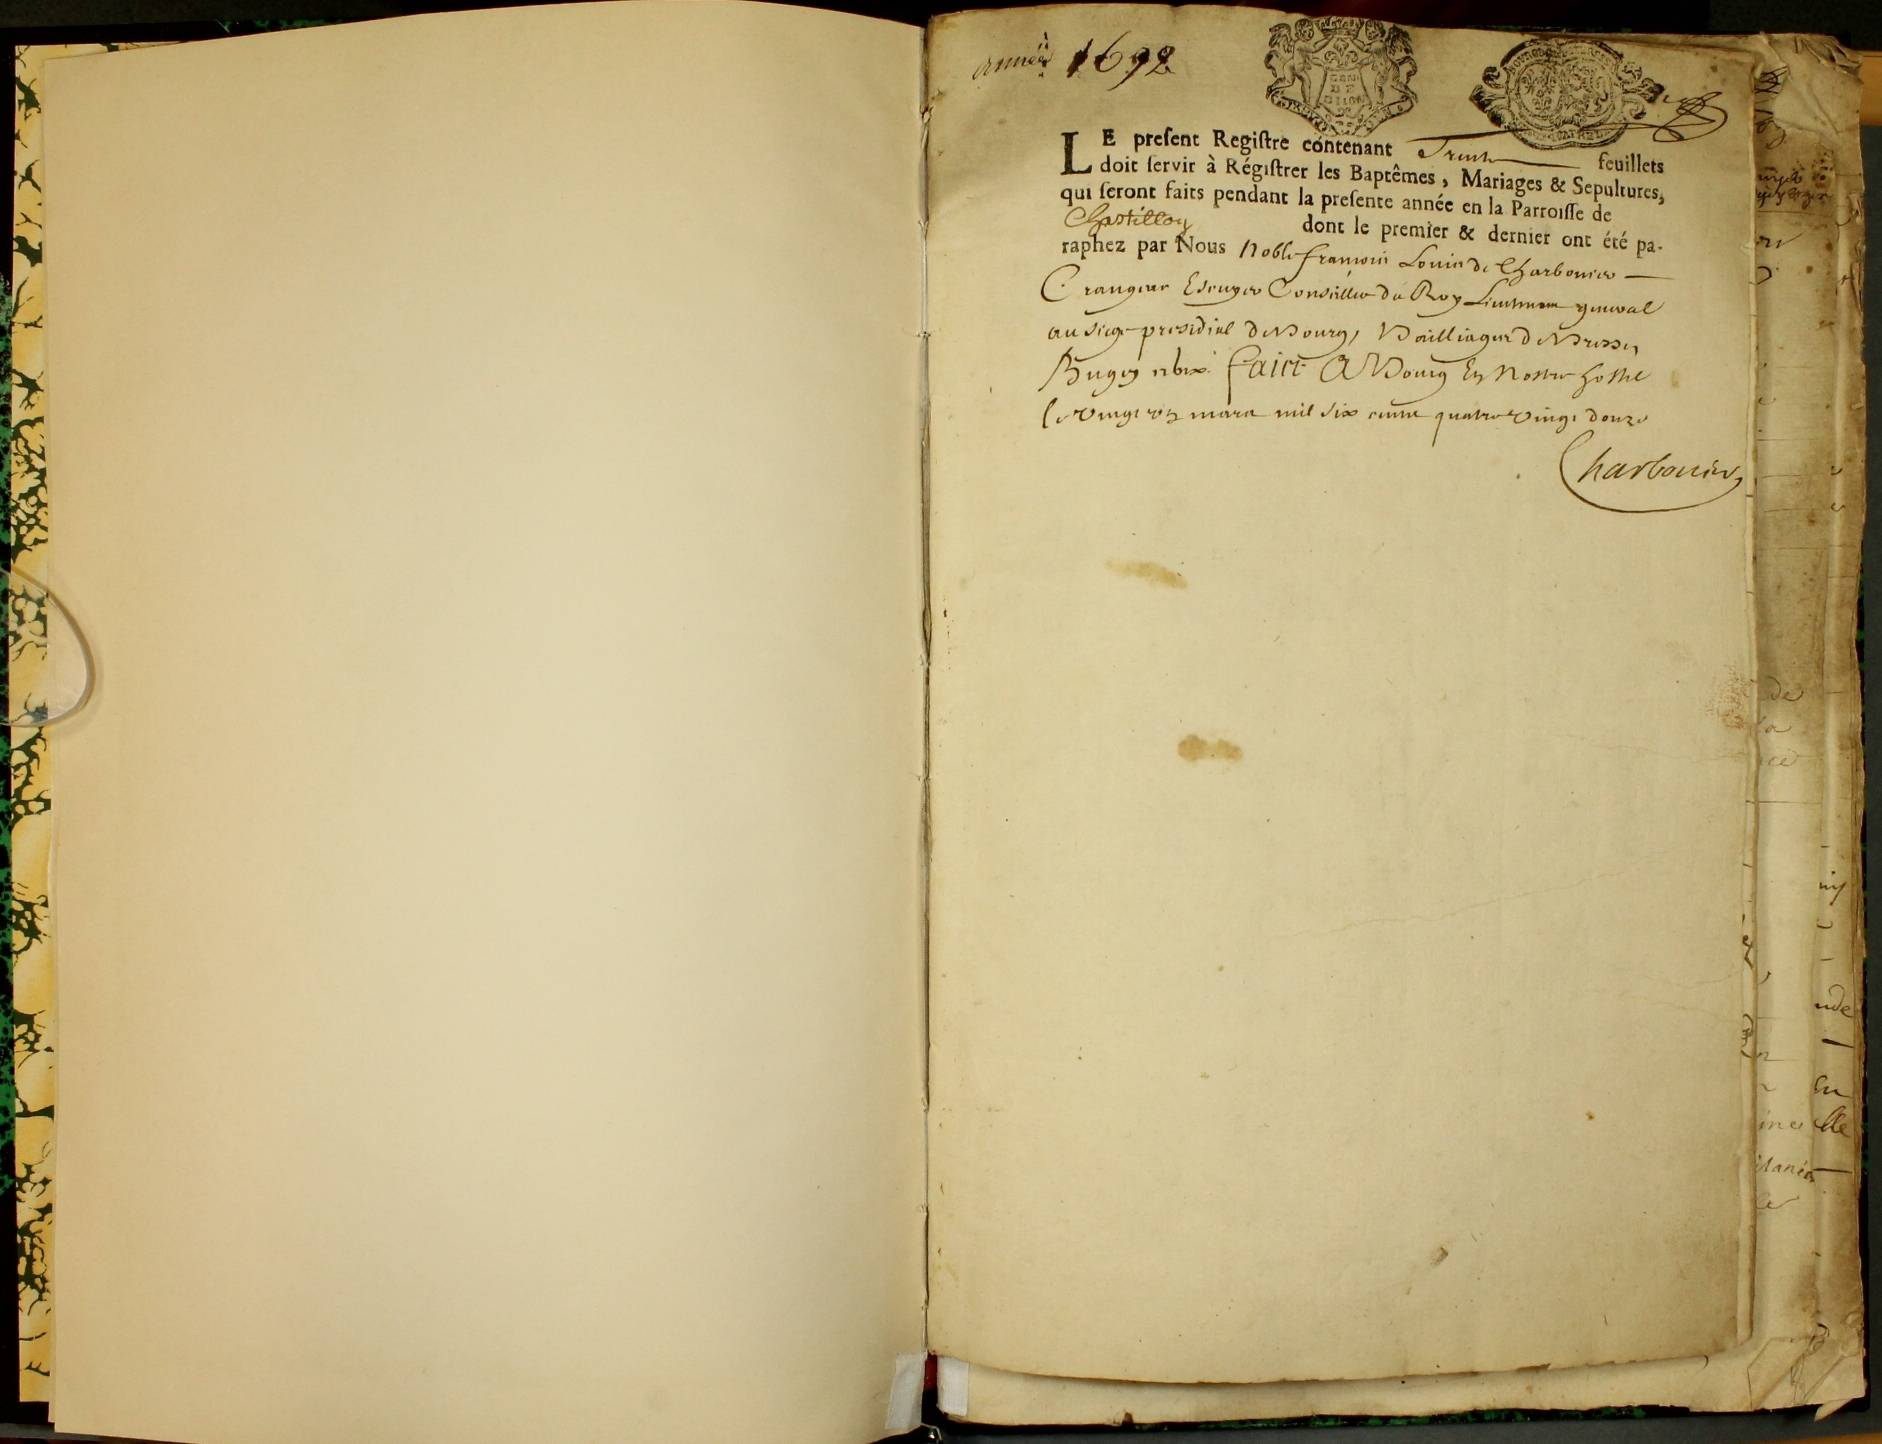 année 1692
GEN
DE
DIION
LE preſent Regiſtre contenant Trente feuillets
doit ſervir à Régiſtrer les Baptêmes, Mariages & Sepultures,
qui ſeront faits pendant la preſente année en la Parroiſſe de
Chastillon dont le premier & dernier ont été pa-
raphez par Nous Noble françois Louis de Charbonier
Crangeac Escuyer Conseiller du Roy Lieutenant general
au siege presidial de Bourg, Bailliages de Bresse,
Bugey et Gex. faict A Bourg En Nostre hostel
le vingt un mars mil six cents quatre vingt douze
Charbonier